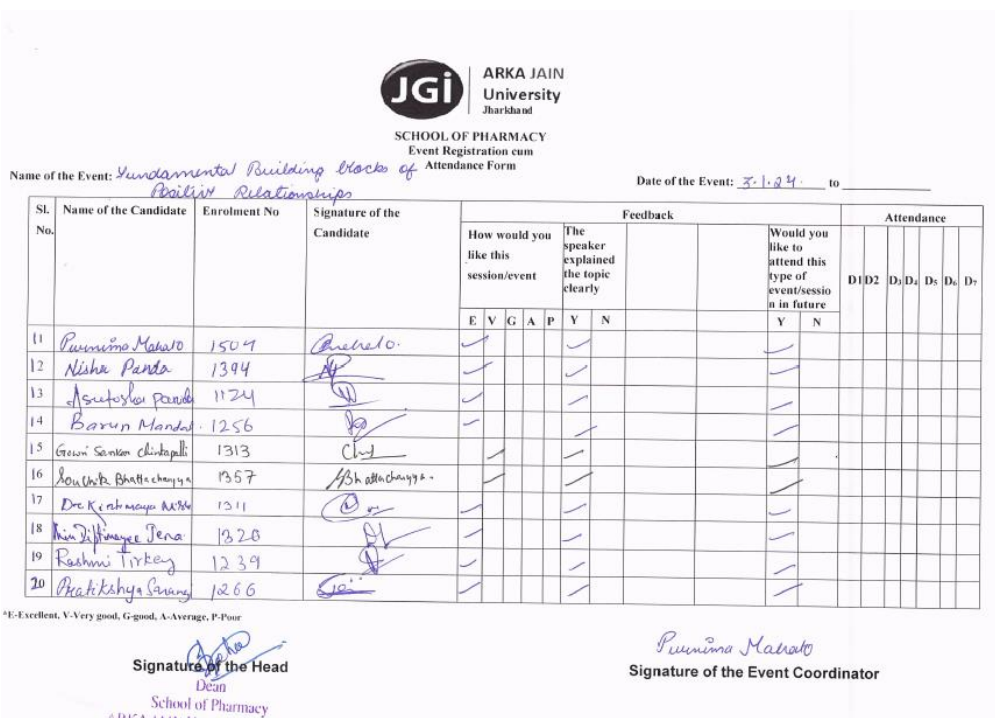 JGi
ARKA JAIN
University
Jharkhand
SCHOOL OF PHARMACY
Event Registration cum
Attendance Form
Name of the Event: Fundamental Building blocks of
Positive Relationships
Date of the Event: 3.1.24. to
Sl. No. Name of the Candidate Enrolment No Signature of the Candidate Feedback Attendance
How would you like this session/event The speaker explained the topic clearly Would you like to attend this type of event/sessio n in future D1 D2 D3 D4 D5 D6 D7
E V G A P Y N Y N
11 Purnima Mahato 1504
12 Nisha Panda 1394
13 Asutosha panda 1124
14 Barun Mandal 1256
15 Gowri Sankar Chintapalli 1313
16 Souvik Bhattacharyya 1357 Bhattacharyya.
17 1311
18 Jena 1320
19 Rashmi Tirkey 1239
20 Pratikshya Sarangi 1266
*E-Excellent, V-Very good, G-good, A-Average, P-Poor
Signature of the Head
Dean
School of Pharmacy
Purnima Mahato
Signature of the Event Coordinator